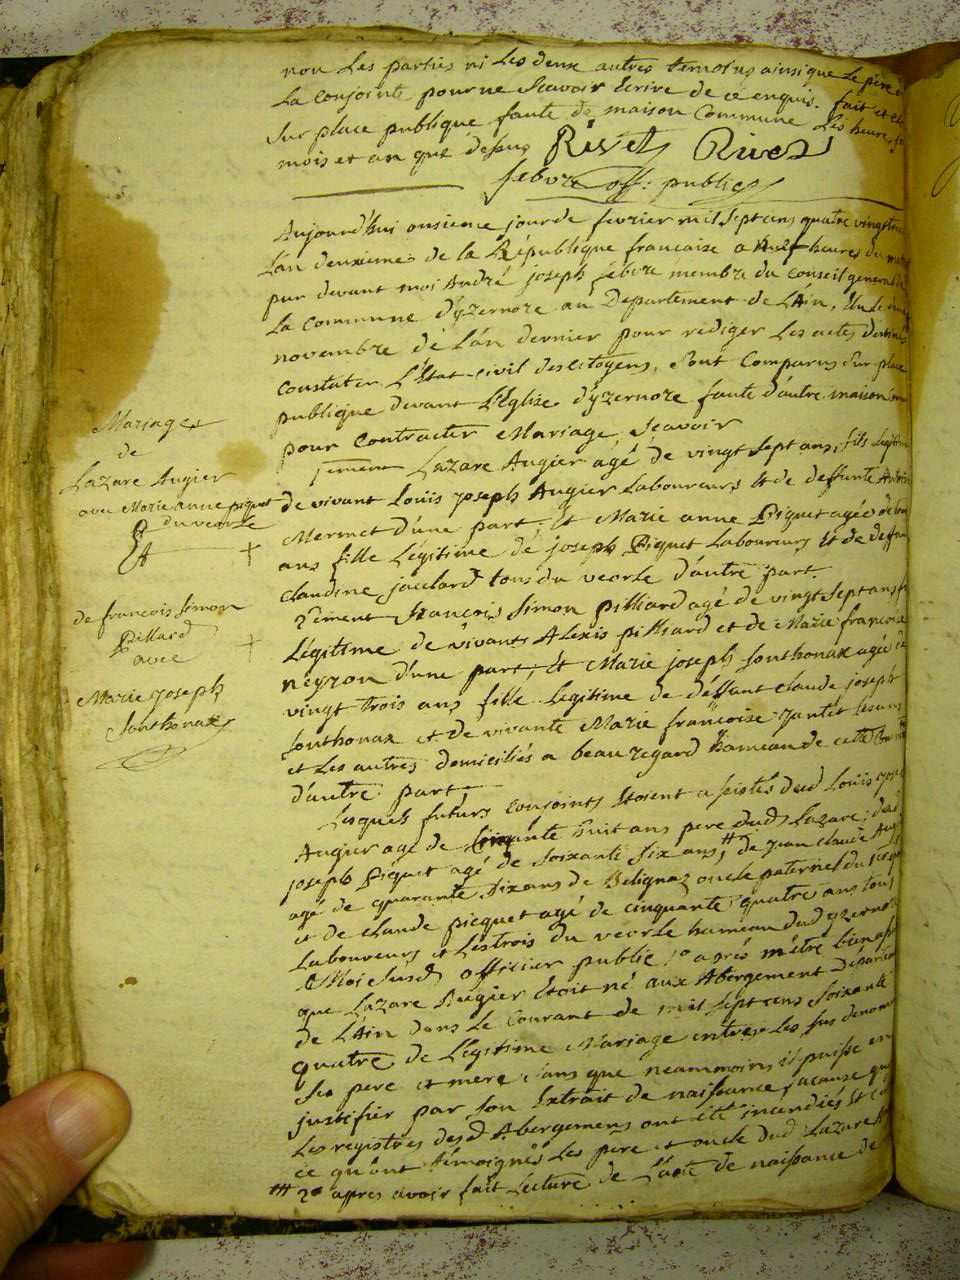 non les parties ni les deux autres temoins ainsi que le pere de
la conjointe pour ne scavoir Ecrire de ce enquis. fait et
Sur place publique faute de maison Commune les heure, jo
mois et an que dessus Rivet Rivet
febvre off: public
Aujourd'hui onsieme jour de fevrier mil Sept cens quatre vingt
L'an deuxieme de la République francaise a heures du
par devant moi André joseph febvre membre du Conseil general de
La commune d'yzernore au Departement de L'Ain, Elu le
novembre de L'an dernier pour rédiger les actes destinés
Constater L'État-civil des citoyens, Sont Comparus Sur place
publique devant L'Eglise d'yzernore faute d'autre maison
pour contracter Mariage, Scavoir
Mariage
de
Lazare Augier
avec Marie anne piquet
du veorle
1ement Lazare Augier agé de vingt Sept ans, fils legitime
de vivant Louis joseph Augier Laboureurs Et de deffunte
Mermet d'une part; Et Marie anne Piquet agée de
ans fille Légitime de joseph Piquet Laboureurs Et de deffunte
claudine jaclard tous du veorle d'autre part.
de francois Simon
Pillard
avec
Marie joseph
Sonthonax
2ement francois Simon pilliard agé de vingt Sept ans f
Légitime de vivants Alexis pilliard et de Marie francoise
neyron d'une part, Et Marie joseph Sonthonax agée de
vingt trois ans fille Legitime de deffunt claude joseph
Sonthonax et de vivante Marie francoise Les uns
et Les autres domiciliés a beauregard hameau de cette
d'autre part
Lesquels futurs conjoints Etoient assistés dud Louis joseph
Augier agé de huit ans pere dud. Lazare; dud
joseph Piquet agé de Soixante Six ans, de jean claude Aug
agé de quarante Six ans de Belignaz oncle paternel du
et de claude picquet agé de cinquante quatre ans tous
Laboureurs et Les trois du veorle hameau dud yzernore
A Moi Susd officier public 1° apres m'être bien
que Lazare Augier Etoit né aux Abergement
de L'Ain dans le courant de mil Sept cens Soixante
quatre de Légitime Mariage entre les sus denom
Ses pere et mere Sans que neammoins il puisse en
justifier par Son Extrait de naissance, a cause que
Les registres desd Abergemens ont été incendiés Et
ce qu'ont témoignés les pere et oncle dud Lazare
2° appres avoir fait Lecture de L'acte de naissance de